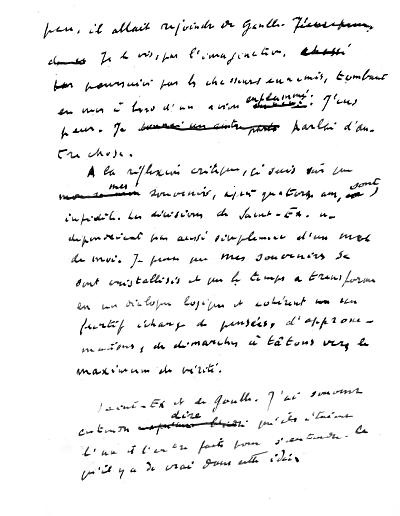 peu, il allait rejoindre de Gaulle.
Je le vis, par l'imagination,
poursuivi par les chasseurs ennemis, tombant
en mer à bord d'un avion enflammé. J'eus
peur. Je parlai d'au-
tre chose.
A la réflexion critique, je suis sûr que
mes souvenirs, après quatorze ans, sont
infidèles. Les décisions de Saint-Ex. ne
dépendaient pas aussi simplement d'un mot
de moi. Je pense que mes souvenirs se
sont cristallisés et que le temps a transformé
en un dialogue logique et cohérent un
furtif échange de pensées, d'approxi-
mations, de démarches à tâtons vers le
maximum de vérité.
Saint-Ex et de Gaulle. J'ai souvent
entendu dire qu'ils étaient
l'un et l'autre faits pour s'entendre. Ce
qu'il y a de vrai dans cette idée